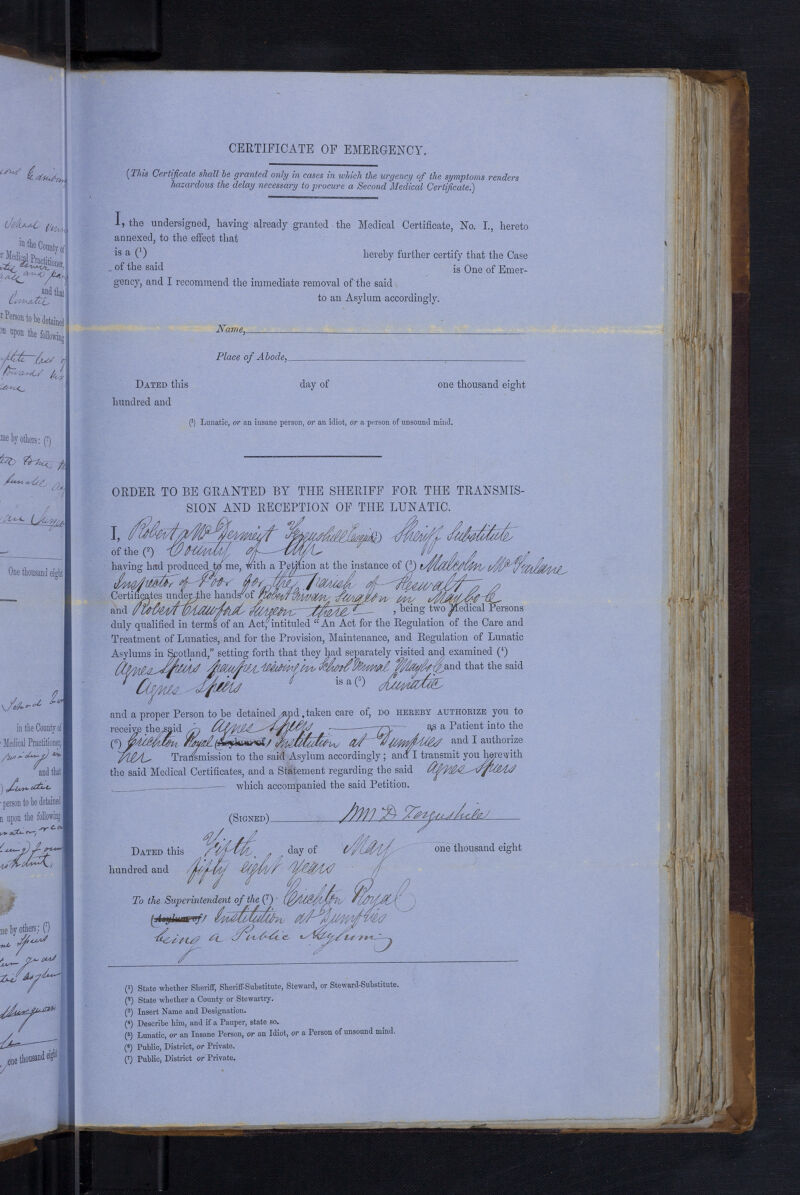 CERTIFICATE OF EMERGENCY.
(This Certificate shall be granted only in cases in which the urgency of the symptoms renders
hazardous the delay necessary to procure a Second Medical Certificate.)
I, the undersigned, having already granted the Medical Certificate, No. I., hereto
annexed, to the effect that
is a (¹) hereby further certify that the Case
of the said is One of Emer-
gency, and I recommend the immediate removal of the said
to an Asylum accordingly.
Name,
Place of Abode,
DATED this day of one thousand eight
hundred and
(¹) Lunatic, or an insane person, or an idiot, or a person of unsound mind.
ORDER TO BE GRANTED BY THE SHERIFF FOR THE TRANSMIS-
SION AND RECEPTION OF THE LUNATIC.
I, Robert Fergushill Esquire Sheriff Substitute
of the (²) County of Ayr
having had produced to me, with a Petition at the instance of (³) Malcolm McFarlane
Inspector of Poor for the Parish of
Certificates under the hands of Robert Girvan, Surgeon in Maybole
and Robert Crawford Surgeon there, being two Medical Persons
duly qualified in terms of an Act, intituled "An Act for the Regulation of the Care and
Treatment of Lunatics, and for the Provision, Maintenance, and Regulation of Lunatic
Asylums in Scotland," setting forth that they had separately visited and examined (⁴)
Agnes Speirs pauper residing in School Vennal Maybole and that the said
Agnes Speirs is a (⁵) Lunatic
and a proper Person to be detained and taken care of, DO HEREBY AUTHORIZE you to
receive the said Agnes Speirs as a Patient into the
(⁶) Crichton Royal (Asylum of) Institution at Dumfries and I authorize
her Transmission to the said Asylum accordingly; and I transmit you herewith
the said Medical Certificates, and a Statement regarding the said Agnes Speirs
which accompanied the said Petition.
(SIGNED) Fergushile
DATED this Fifth day of May one thousand eight
hundred and fifty eight years
To the Superintendent of the (⁷) Crichton Royal
(Asylum of) Institution at Dumfries
being a Public Asylum
(¹) State whether Sheriff, Sheriff-Substitute, Steward, or Steward-Substitute.
(²) State whether a County or Stewartry.
(³) Insert Name and Designation.
(⁴) Describe him, and if a Pauper, state so.
(⁵) Lunatic, or an Insane Person, or an Idiot, or a Person of unsound mind.
(⁶) Public, District, or Private.
(⁷) Public, District or Private.
in the County of
Medical Practitioner,
and that
Lunatic
Person to be detained
upon the following
me by others: (⁷)
One thousand eight
in the County of
Medical Practitioner,
and that
Lunatic
person to be detained
upon the following
me by others; (⁷)
one thousand eight